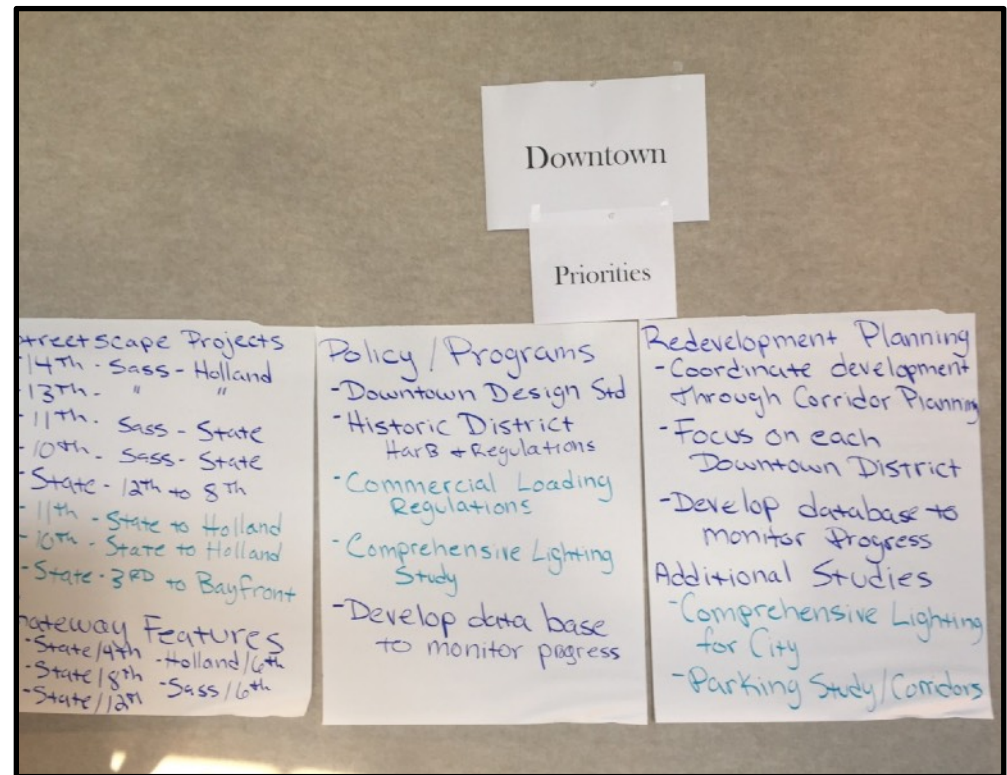 Downtown
Priorities
treetscape Projects
-14th - Sass - Holland
-13th - " "
-11th - Sass - State
-10th - Sass - State
-State - 12th to 8th
-11th - State to Holland
-10th - State to Holland
-State - 3RD to Bayfront
ateway Features
-State/4th -Holland/6th
-State/8th -Sass/6th
-State/12th
Policy / Programs
-Downtown Design Std
-Historic District
HarB + Regulations
-Commercial Loading
Regulations
-Comprehensive Lighting
Study
-Develop data base
to monitor pogress
Redevelopment Planning
-Coordinate development
through Corridor Planning
-Focus on each
Downtown District
-Develop database to
monitor Progress
Additional Studies
-Comprehensive Lighting
for City
-Parking Study/Corridors